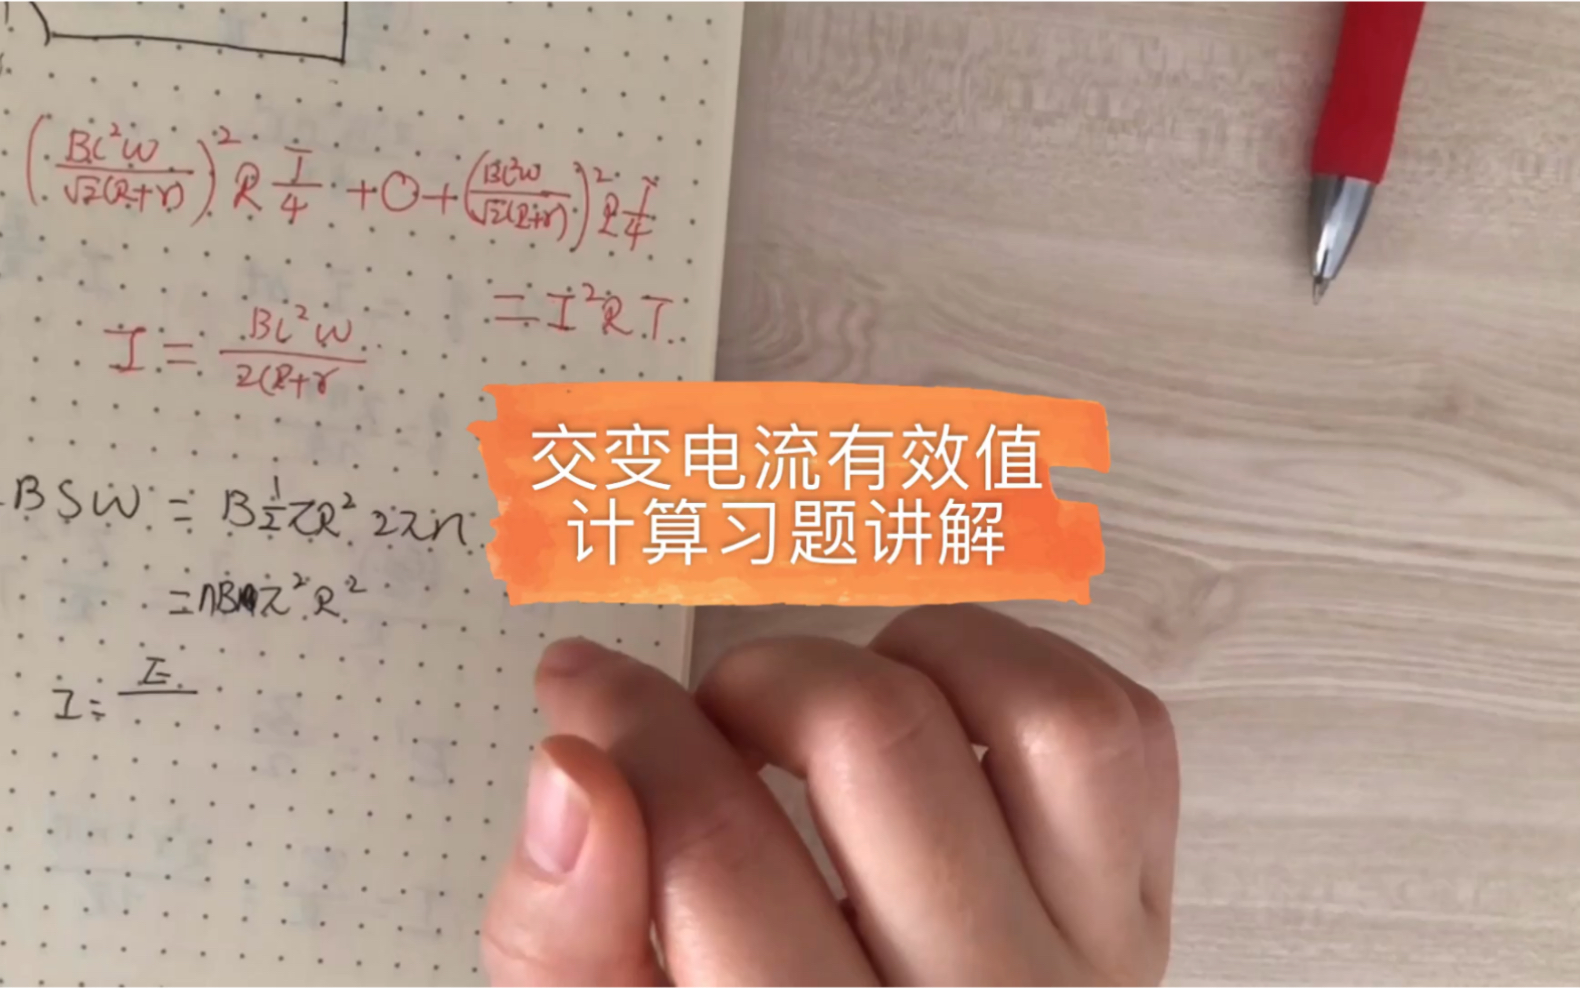 (BL²W/√2(R+r))²R T/4 + 0 + (BL²W/√2(R+r))²R T/4
= I²RT
I = BL²W/2(R+r
交变电流有效值
计算习题讲解
BSW = B½πR²2πn
=nBπ²R²
I = E/